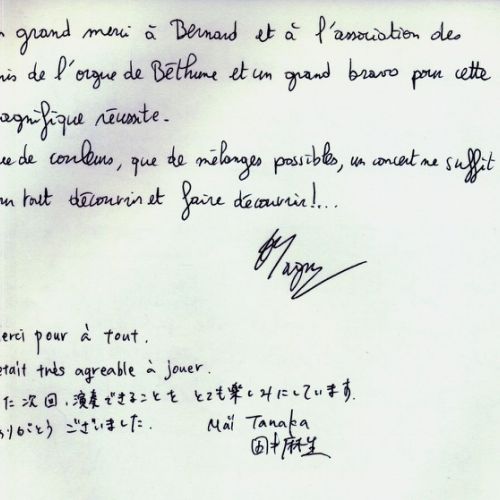 grand merci à Bernard et à l'association des
is de l'orgue de Béthune et un grand bravo pour cette
agnifique réussite.
ue de couleurs, que de mélanges possibles, un concert ne suffit
tout découvrir et faire découvrir!...
erci pour à tout.
etait très agreable à jouer.
た次回、演奏できることを とても楽しみにしています.
りがとう ございました. Maï Tanaka
田中麻生